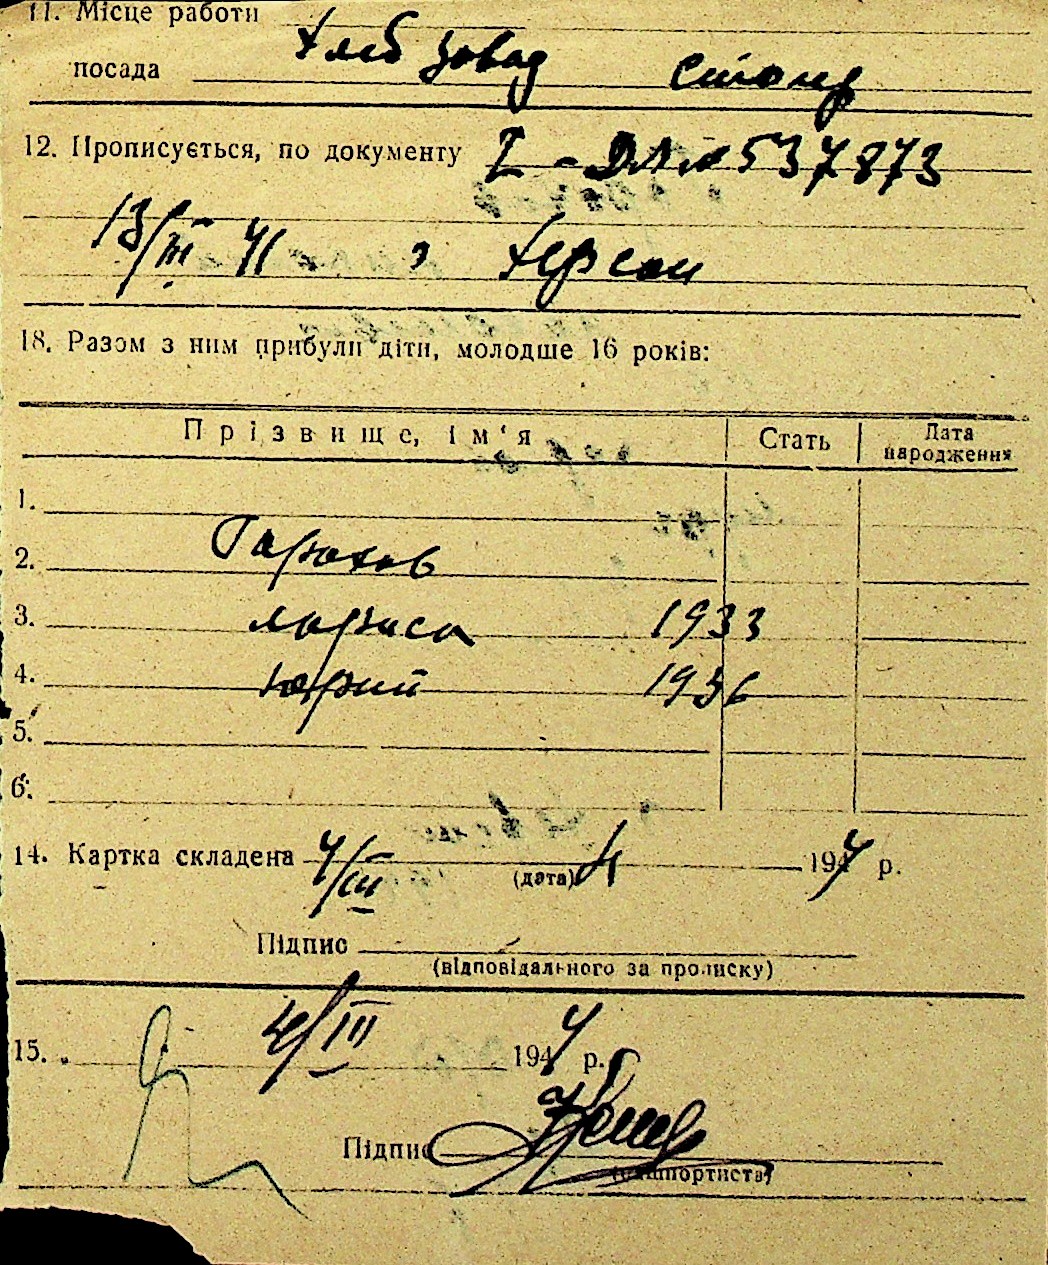 11. Місце работи Хлеб завод
посада столяр
12. Прописується, по документу I-ДЛМ 537873
13/III 41 з Херсон
18. Разом з ним прибули діти, молодше 16 років:
Прізвище, ім'я Стать Дата народження
1.
2. Гарахов
3. Лариса 1933
4. Юрий 1936
5.
6.
14. Картка складена 4/III 194 р.
(дата)
Підпис
(відповідального за прописку)
15. 4/III 1944 р.
Підпис
(паспортиста)